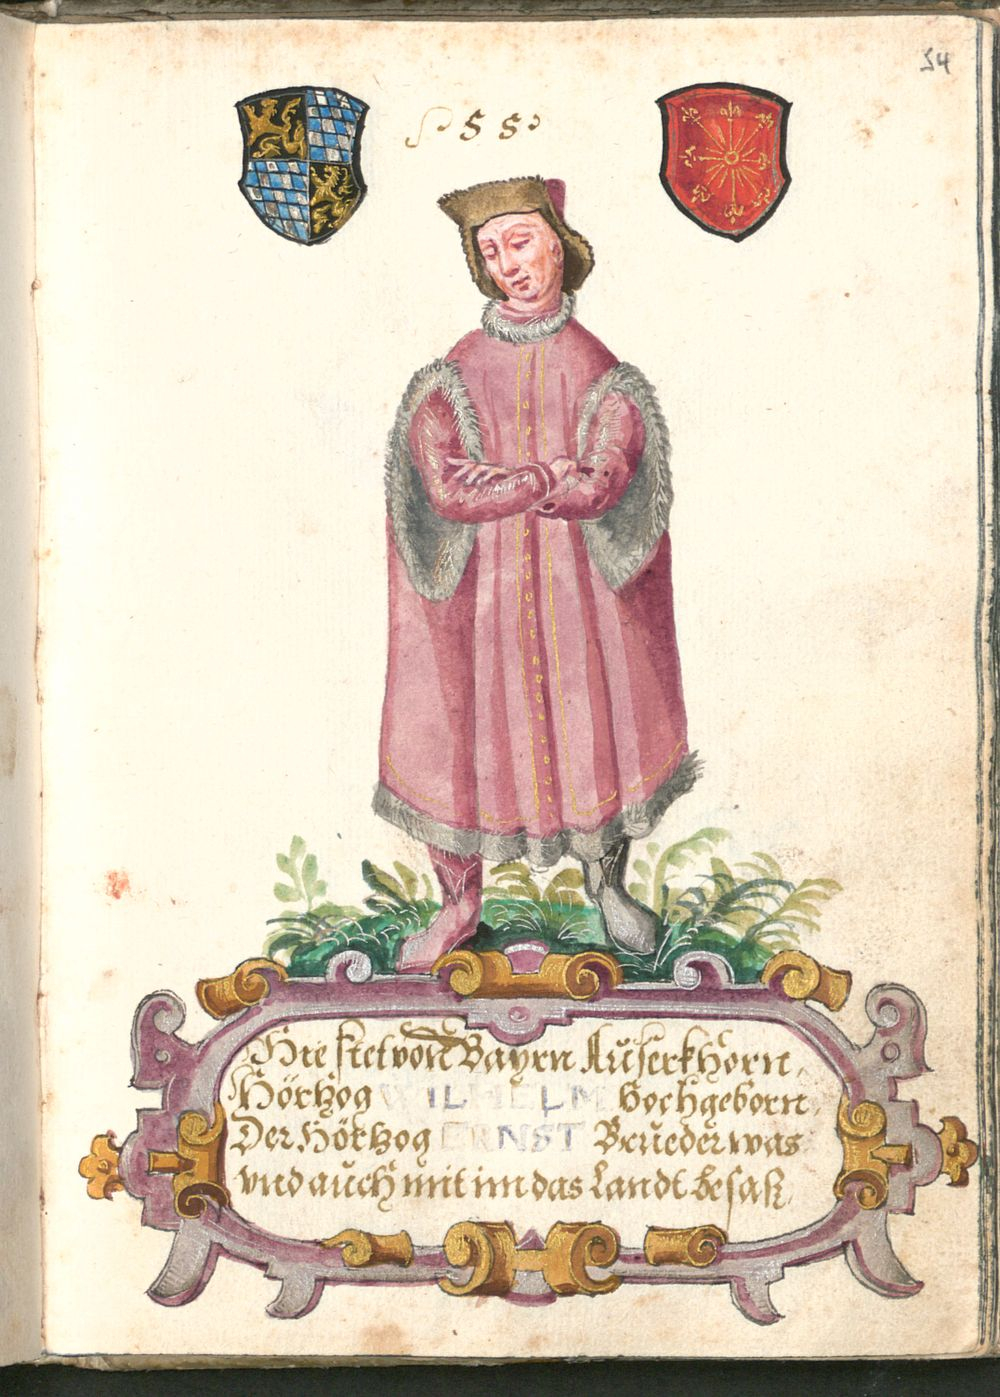 54
55
Hie stet von Bayrn Auserkhorn,
Hörtzog WILHELM hochgeborn,
Der Hörtzog ERNST Brueder was
vnd auch mit im das Landt besasz.